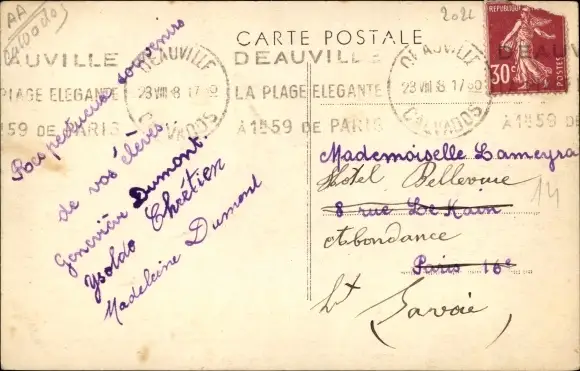 AA
Calvados
2021
CARTE POSTALE
REPUBLIQUE
30c
POSTES
DEAUVILLE
LA PLAGE ELEGANTE
A 1H59 DE PARIS
DEAUVILLE
28 VIII 8 17 00
CALVADOS
DEAUVILLE
LA PLAGE ELEGANTE
A 1H59 DE PARIS
DEAUVILLE
28 VIII 8 17 00
CALVADOS
DEAUV
Respectueux souvenirs
de vos élèves.
Geneviève Dumont.
Ysolde Chrétien
Madeleine Dumont
Mademoiselle Lameyra
Hôtel Bellevue
8 rue Le Kain
Abondance
Paris 16e
Ht
(Savoie)
14